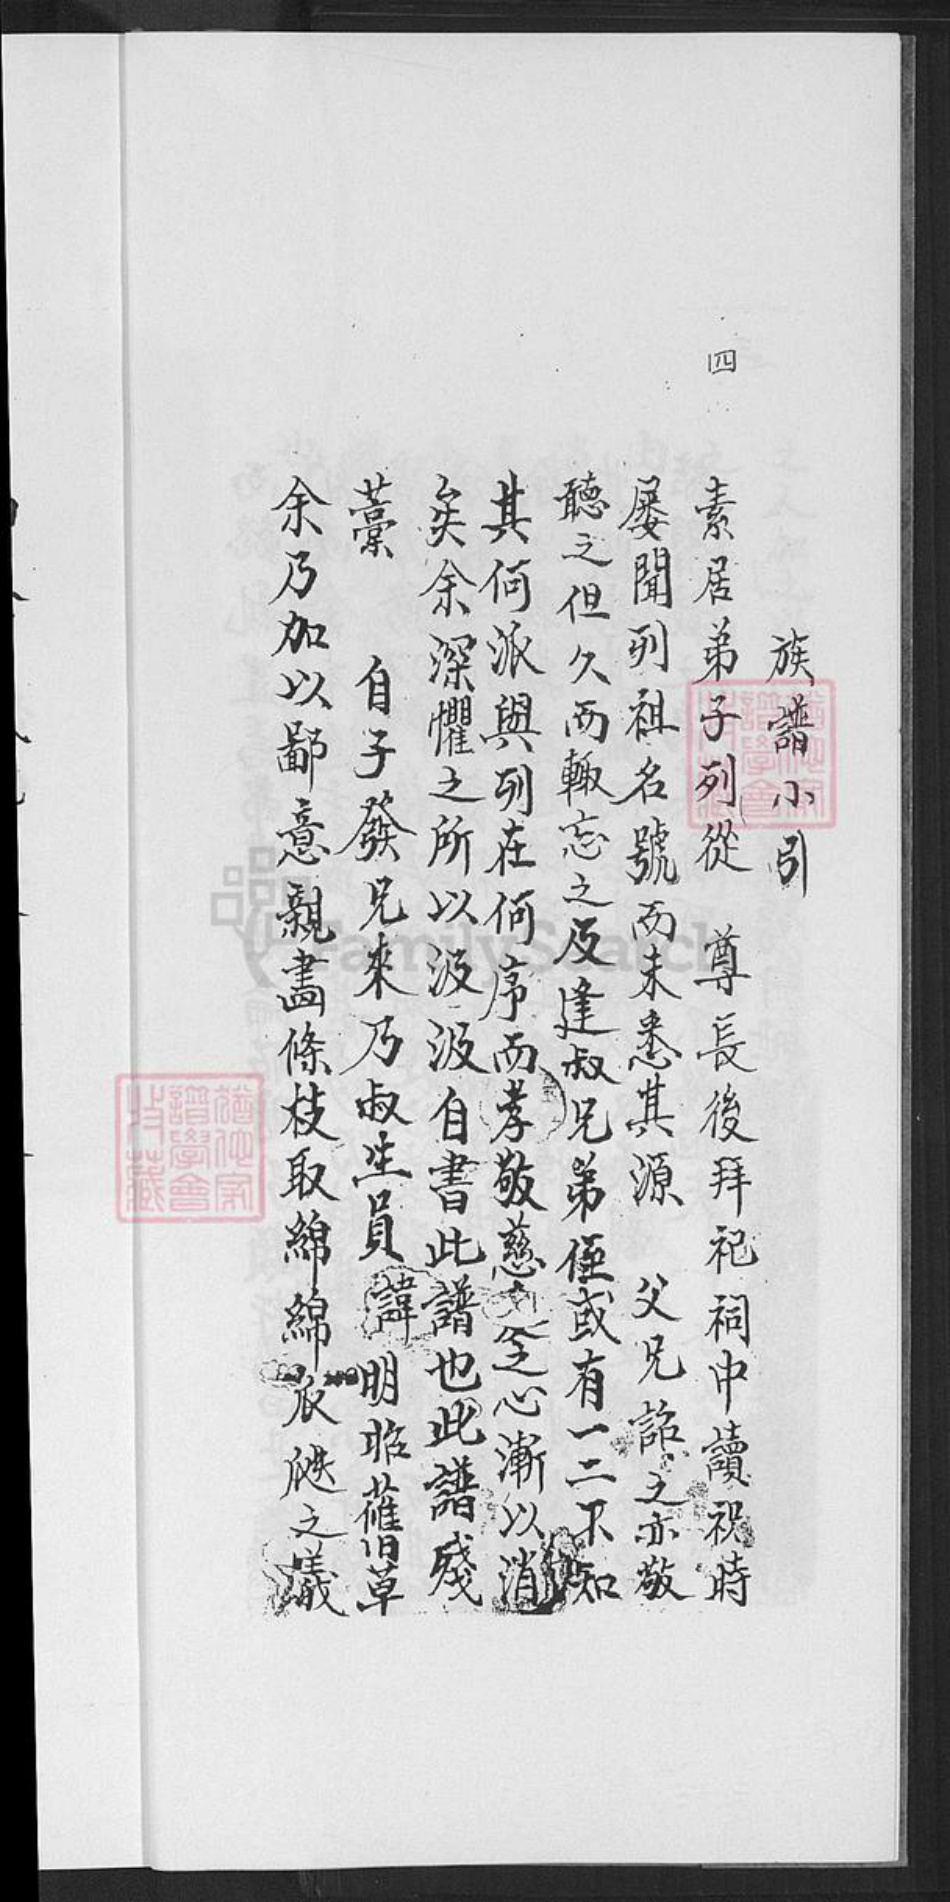 四
族譜小引
素居弟子列從 尊長後拜祀祠中讀祝時
屡聞列祖名號而未悉其源 父兄詔之亦敬
聽之但久而輙忘之及逢叔兄弟侄或有一二不知
其何派與列在何序而孝敬慈之心漸以消
矣余深懼之所以汲汲自書此譜也此譜殘
藁 自子發兄來乃叔生員 諱明昭舊草
余乃加以鄙意親畫條枝取綿綿瓜瓞之義
FamilySearch
譜學會
收藏
譜學會
收藏